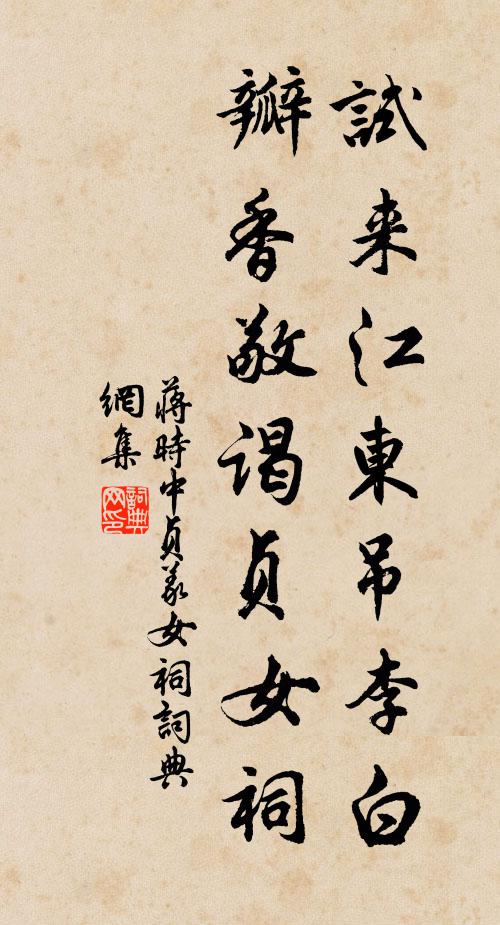 試来江東吊李白
瓣香敬謁貞女祠
蔣時中貞義女祠詞典
網集
詞典
网印